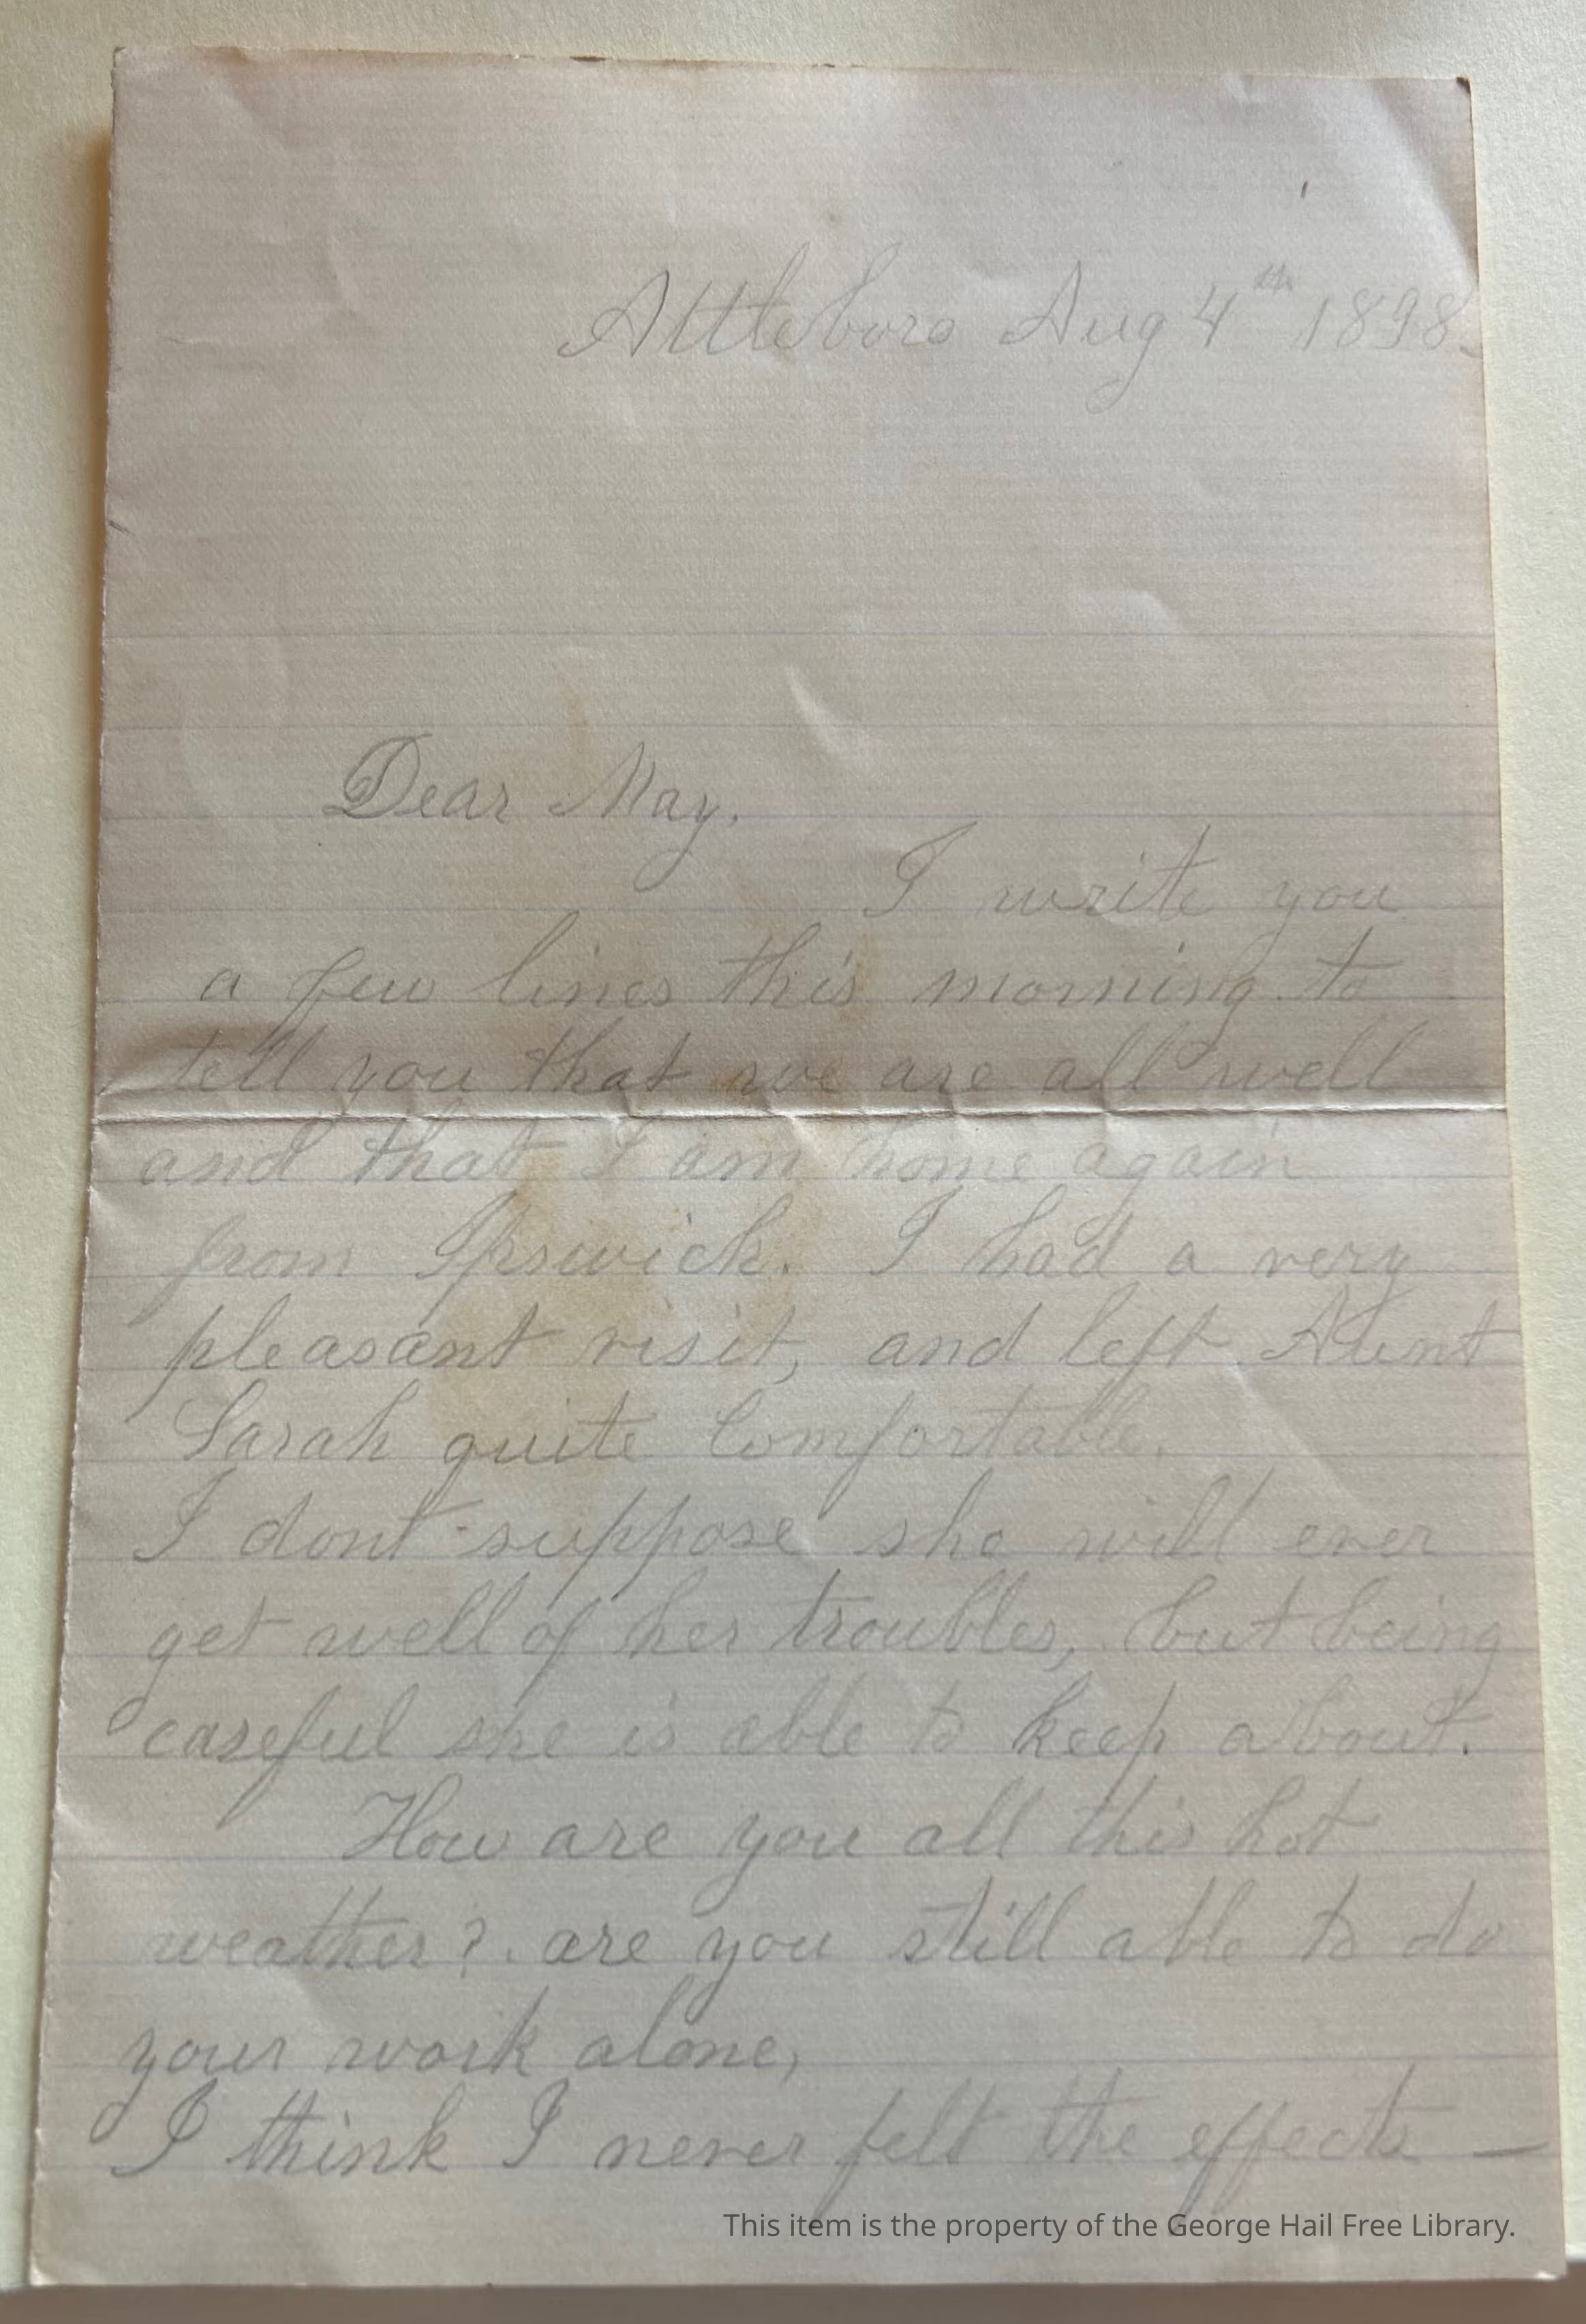 Attleboro Aug 4th 1898.
Dear May,
I write you
a few lines this morning to
tell you that we are all well
and that I am home again
from Ipswich. I had a very
pleasant visit, and left Aunt
Sarah quite Comfortable.
I dont suppose she will ever
get well of her troubles, but being
careful she is able to keep about.
How are you all this hot
weather? are you still able to do
your work alone,
I think I never felt the effects —
This item is the property of the George Hail Free Library.